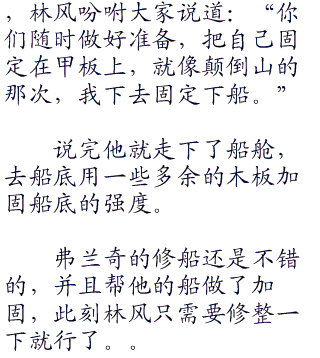 ，林风吩咐大家说道：“你
们随时做好准备，把自己固
定在甲板上，就像颠倒山的
那次，我下去固定下船。”
说完他就走下了船舱，
去船底用一些多余的木板加
固船底的强度。
弗兰奇的修船还是不错
的，并且帮他的船做了加
固，此刻林风只需要修整一
下就行了。。